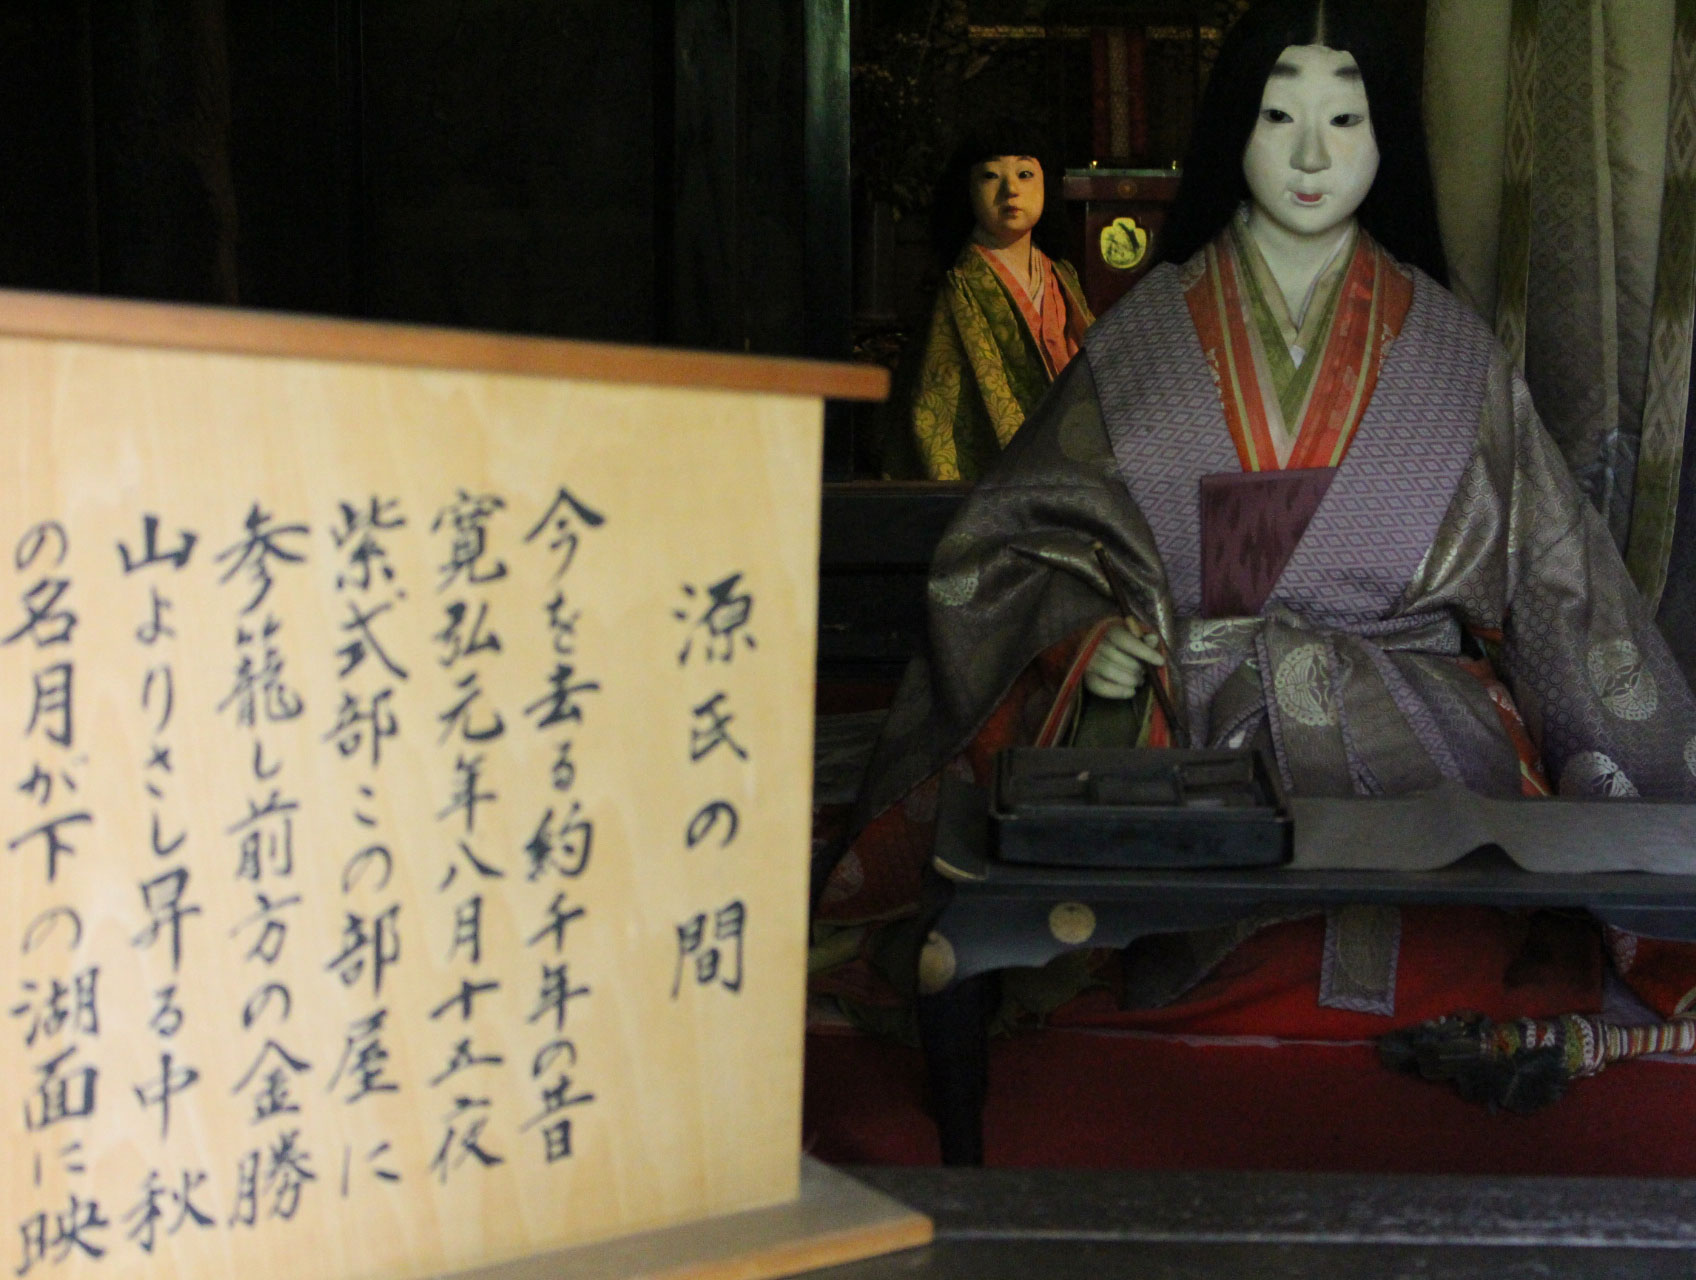 源氏の間
今を去る約千年の昔
寛弘元年八月十五夜
紫式部この部屋に
参籠し前方の金勝
山よりさし昇る中秋
の名月が下の湖面に映